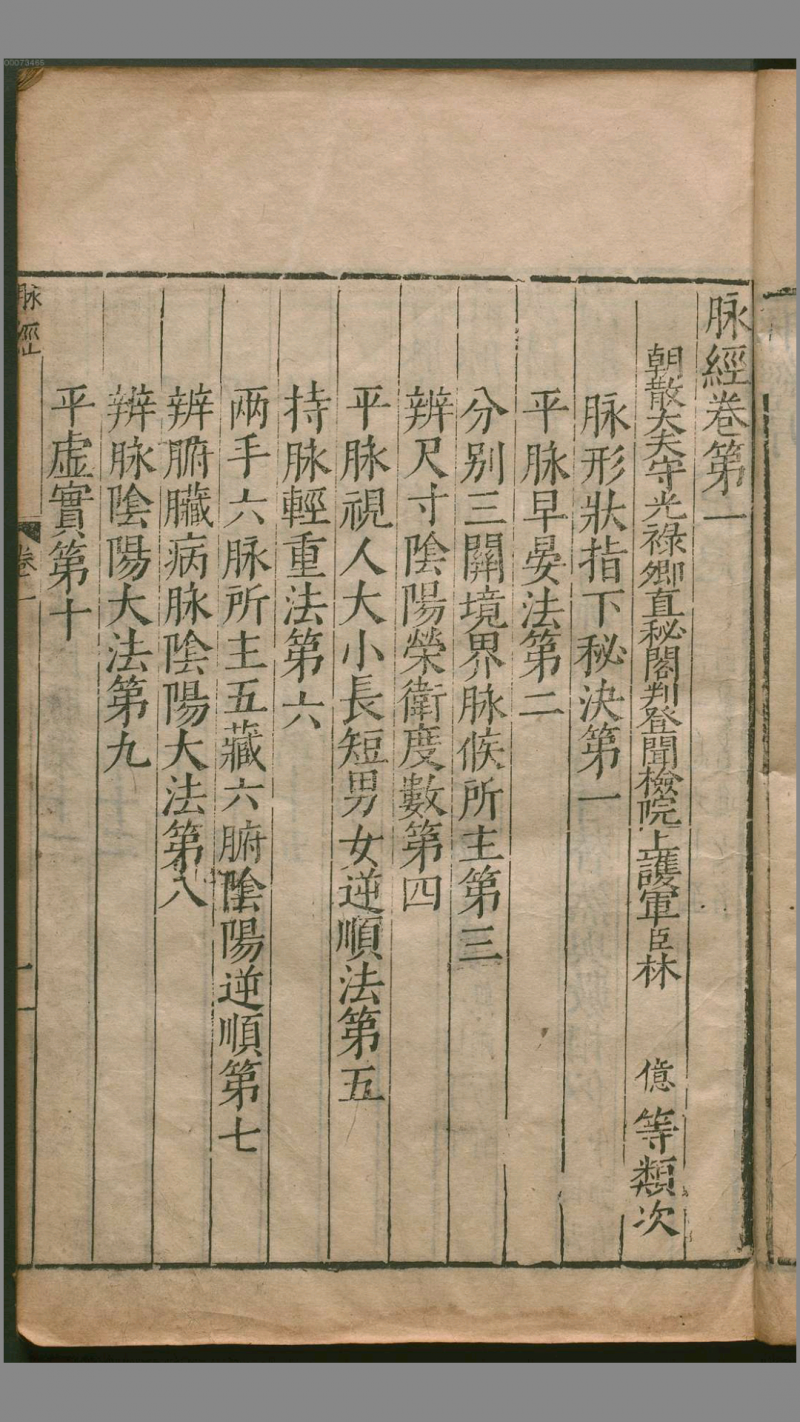 脉經卷第一
朝散大夫守光祿卿直秘閣判登聞檢院上護軍臣林億等類次
脉形狀指下秘决第一
平脉早晏法第二
分别三關境界脉候所主第三
辨尺寸陰陽榮衛度數第四
平脉視人大小長短男女逆順法第五
持脉輕重法第六
兩手六脉所主五藏六腑陰陽逆順第七
辨腑臟病脉陰陽大法第八
辨脉陰陽大法第九
平虚實第十
脉經
卷一
一
00073465